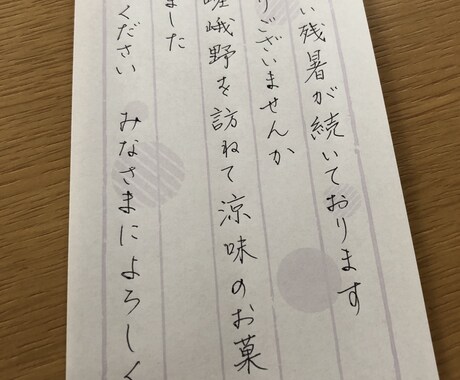 い残暑が続いております
りございませんか
嵯峨野を訪ねて涼味のお菓
ました
ください みなさまによろしく